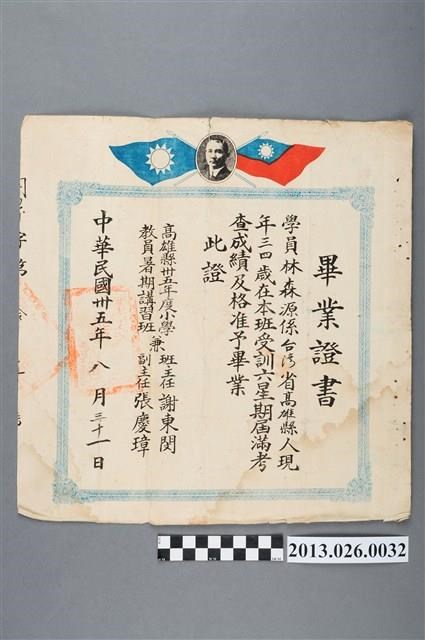 畢業證書
學員林森源係台湾省高雄縣人現
年三四歲在本班受訓六星期屆滿考
查成績及格准予畢業
此證
高雄縣卅五年度小學
教員暑期講習班
兼班主任謝東閔
副主任張慶璋
中華民國卅五年八月三十一日
字第
2013.026.0032